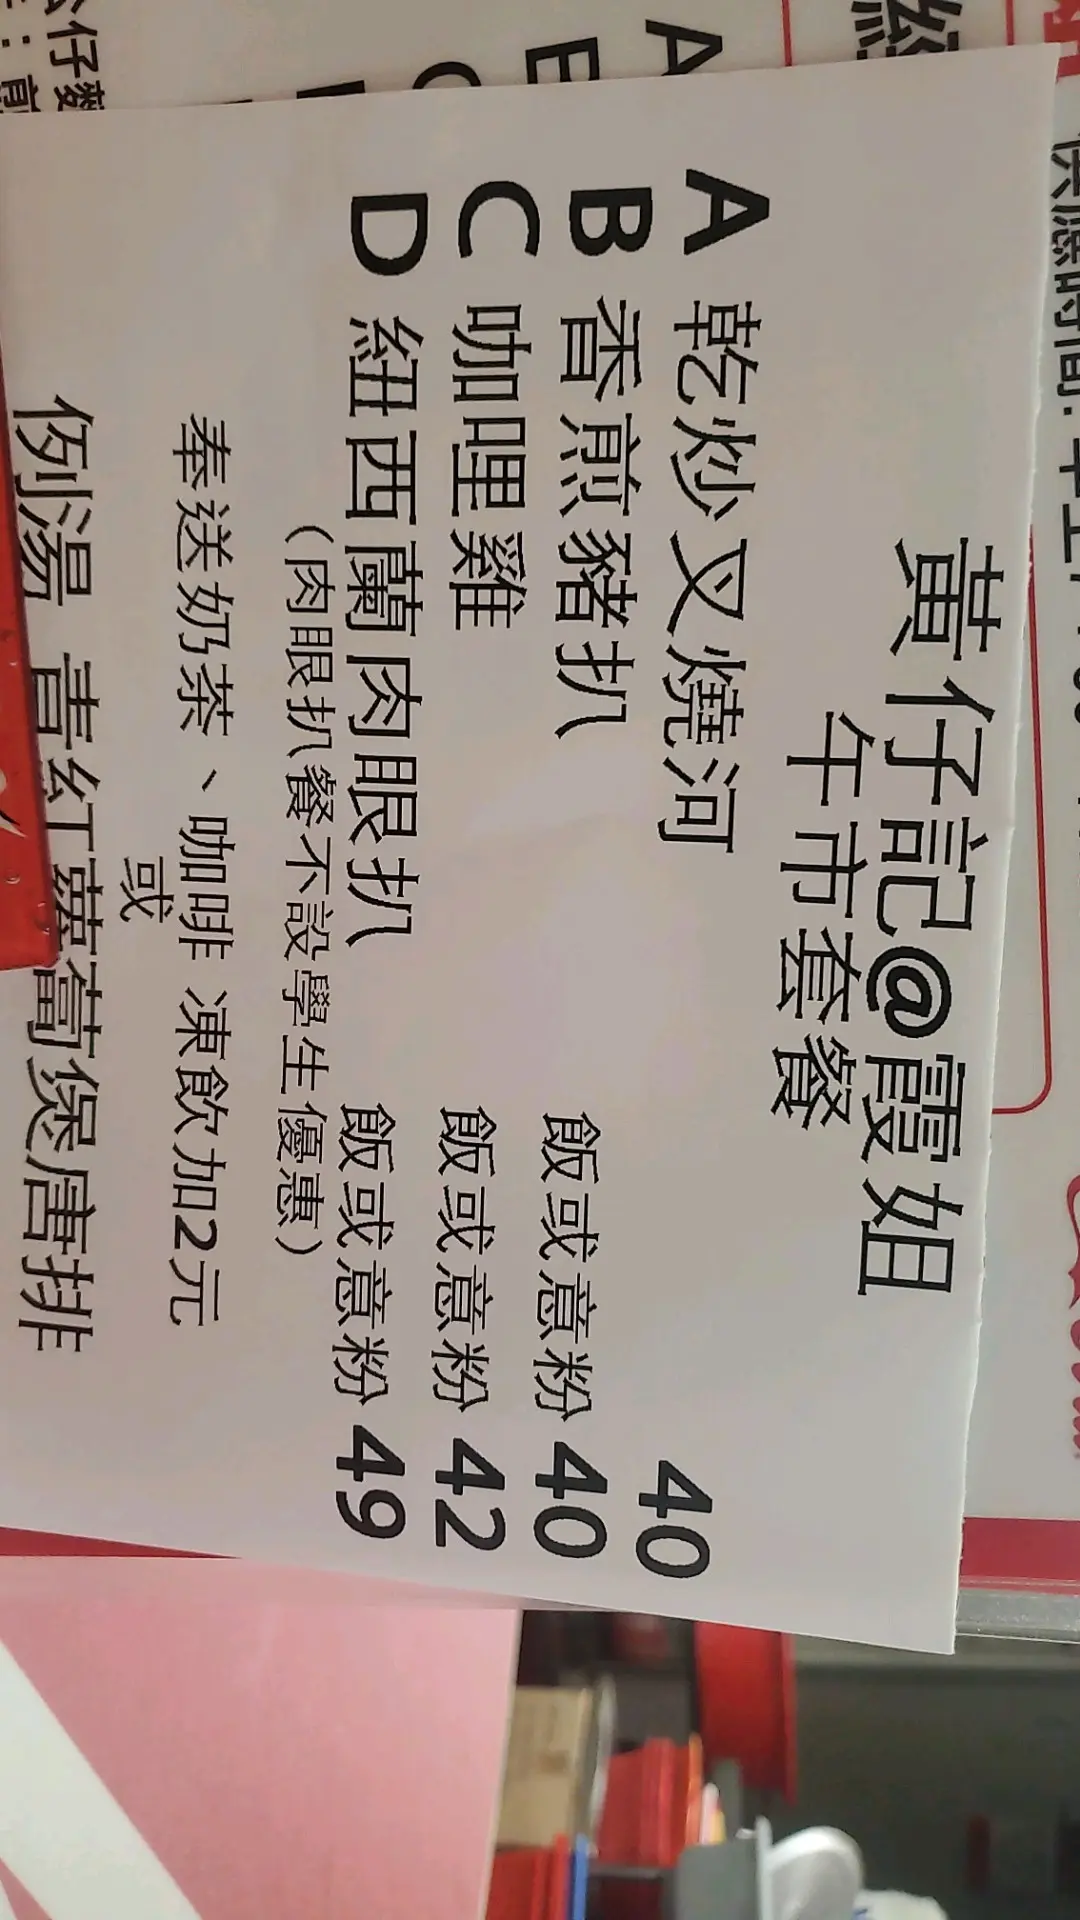 黃仔記@霞姐
午市套餐
A 乾炒叉燒河 40
B 香煎豬扒 飯或意粉 40
C 咖哩雞 飯或意粉 42
D 紐西蘭肉眼扒 飯或意粉 49
(肉眼扒餐不設學生優惠)
奉送奶茶、咖啡 凍飲加2元
或
例湯 青紅蘿蔔煲唐排
A
B
C